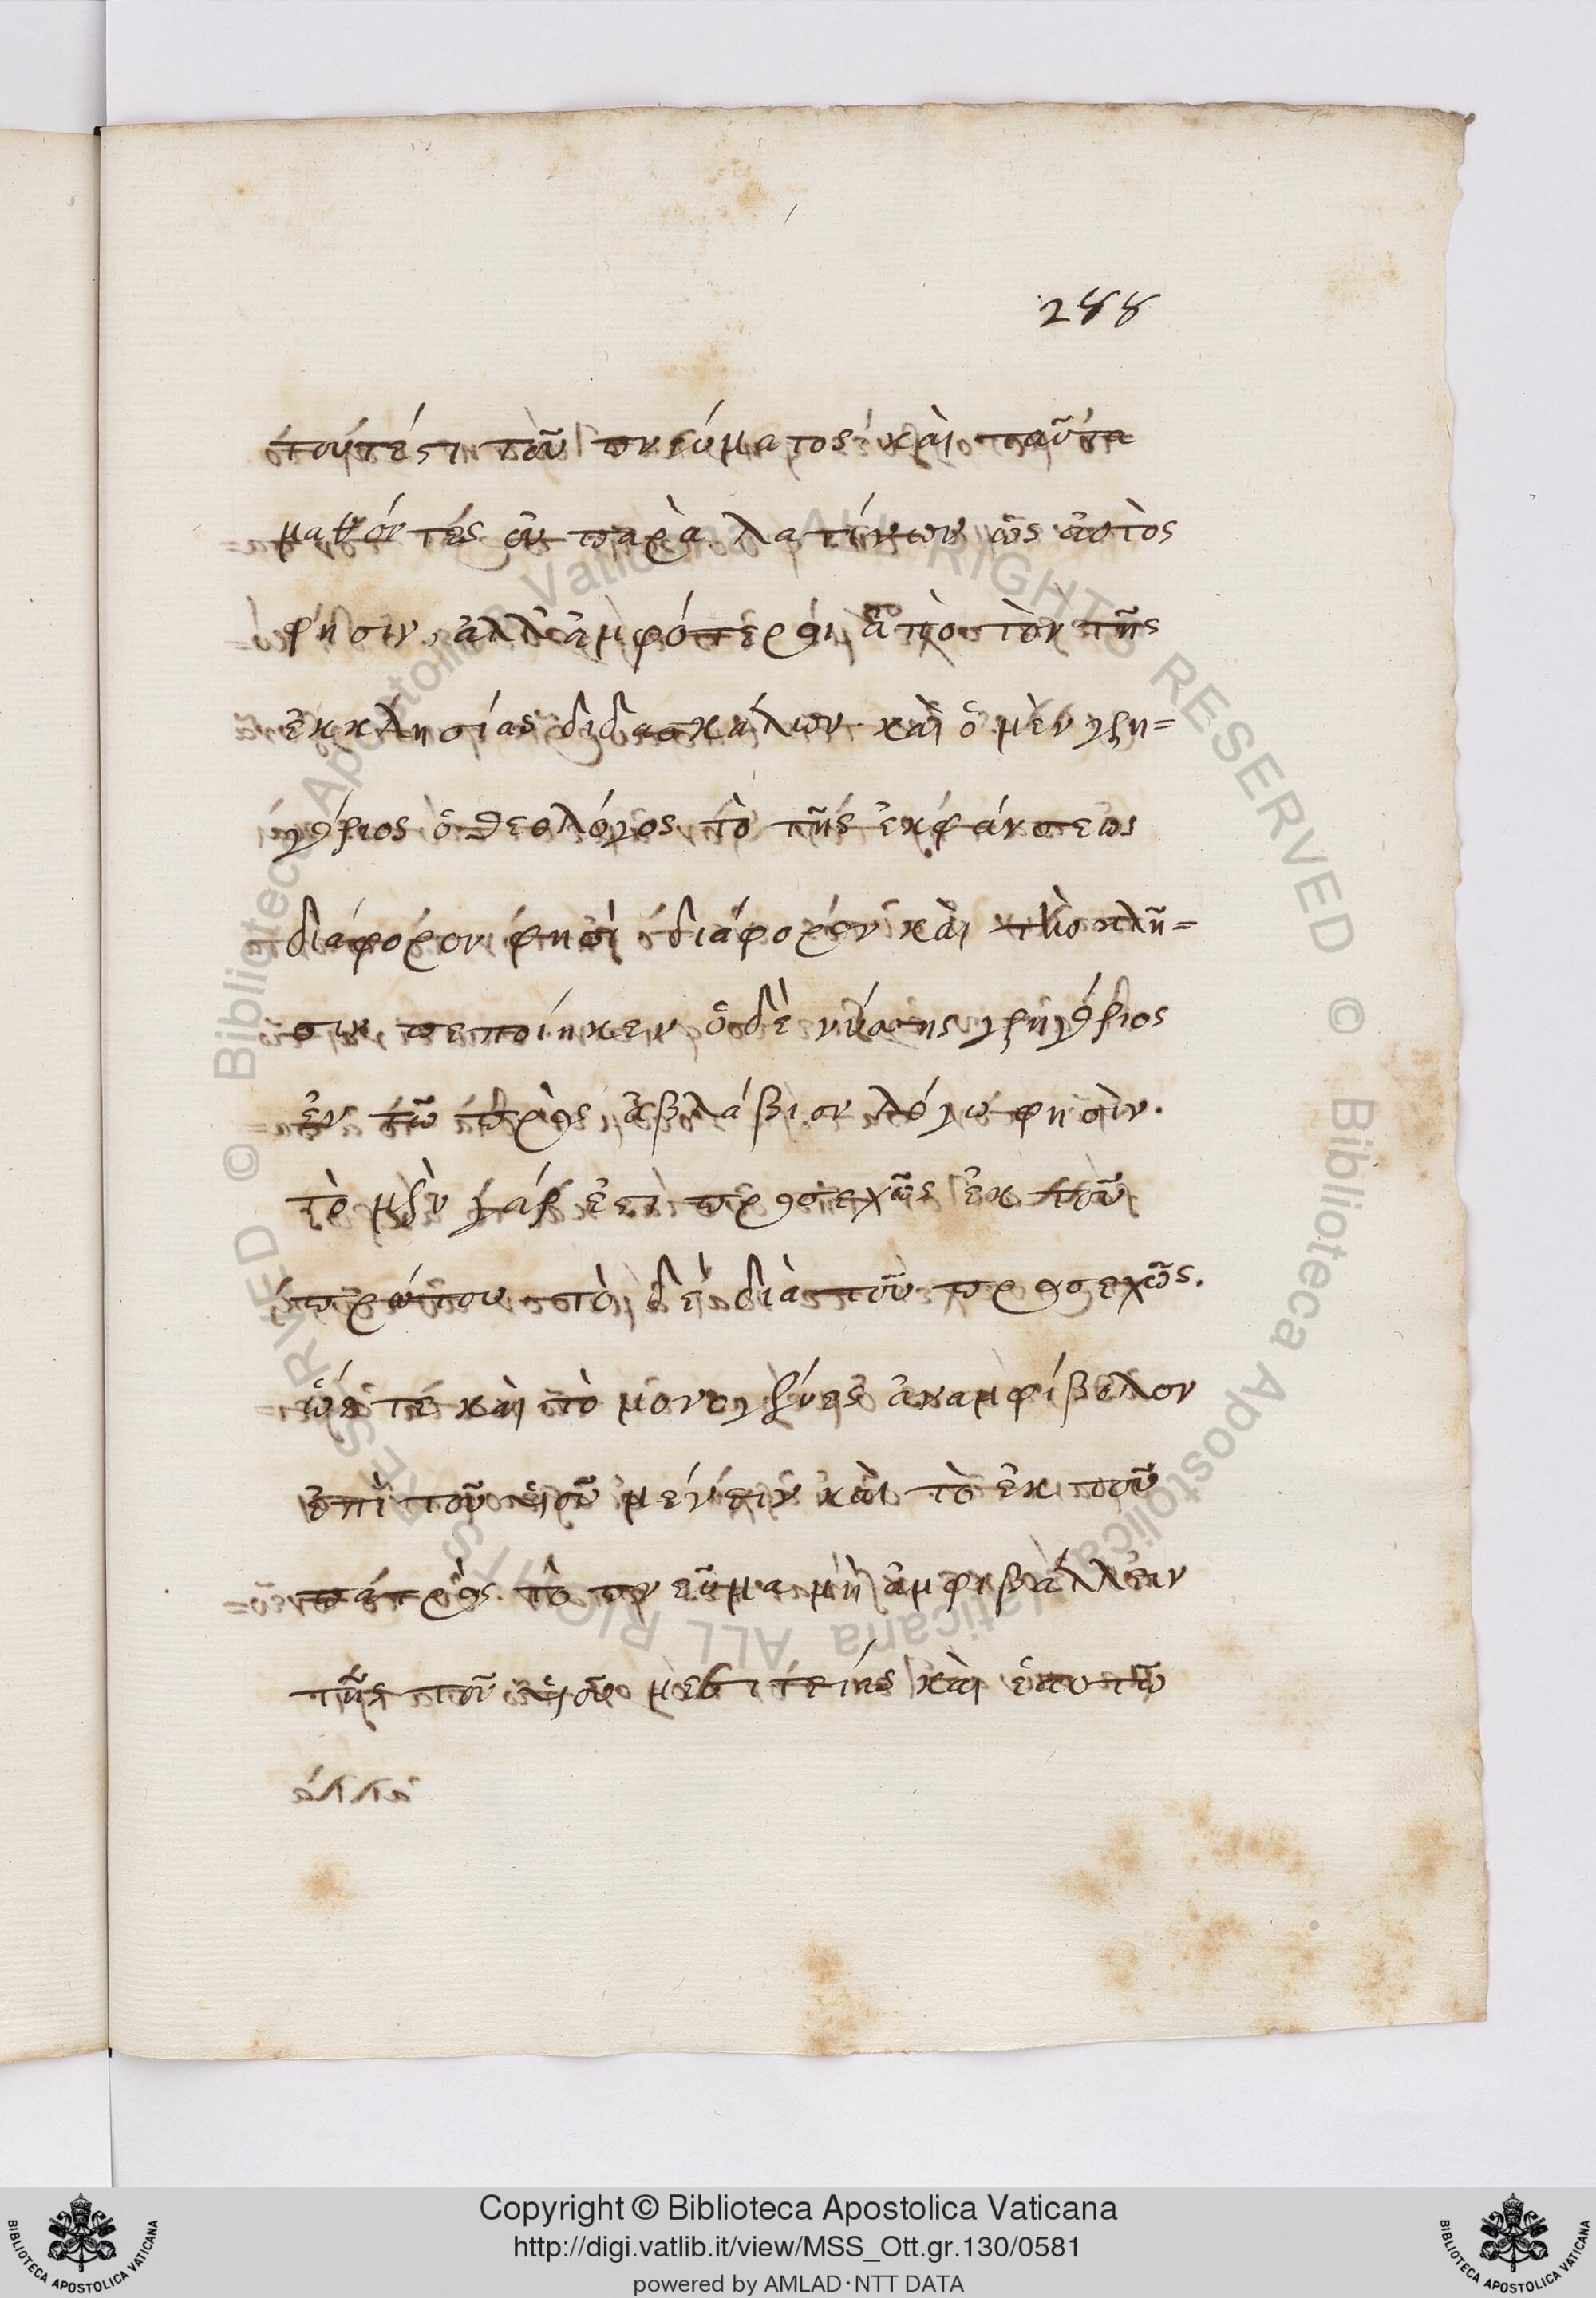 288
τουτέστι τοῦ πνεύματος καὶ ταῦτα
μαθόντες οὐ παρὰ λατίνων ὡς αὐτὸς
φησιν, ἀλλ' ἀμφότεροι ἀπὸ τὸν τῆς
ἐκκλησίας διδασκάλων καὶ ὁ μὲν γρη=
γόριος ὁ θεολόγος τὸ τῆς ἐκφάνσεως
διάφορον φησὶ διάφορον καὶ τὴν κλῆ=
σιν πεποίηκεν ὁ δὲ νύσης γρηγόριος
ἐν τῶ πρὸς ἀβλάβιον λόγω φησὶν.
τὸ μὲν γὰρ ἐστὶ προσεχῶς ἐκ τοῦ
πρώτου τὸ δὲ διὰ τοῦ προσεχῶς.
ὥστε καὶ τὸ μονογενὲς ἀναμφίβολον
ἐπὶ τοῦ υἱοῦ μένειν καὶ τὸ ἐκ τοῦ
πατρὸς τὸ πνεῦμα μὴ ἀμφιβάλλειν
τῆς τοῦ υἱοῦ μεσιτείας καὶ ἑαυτῶ
Copyright © Biblioteca Apostolica Vaticana
http://digi.vatlib.it/view/MSS_Ott.gr.130/0581
powered by AMLAD·NTT DATA
BIBLIOTECA APOSTOLICA VATICANA
BIBLIOTECA APOSTOLICA VATICANA
© Biblioteca Apostolica Vaticana ALL RIGHTS RESERVED
© Biblioteca Apostolica Vaticana ALL RIGHTS RESERVED